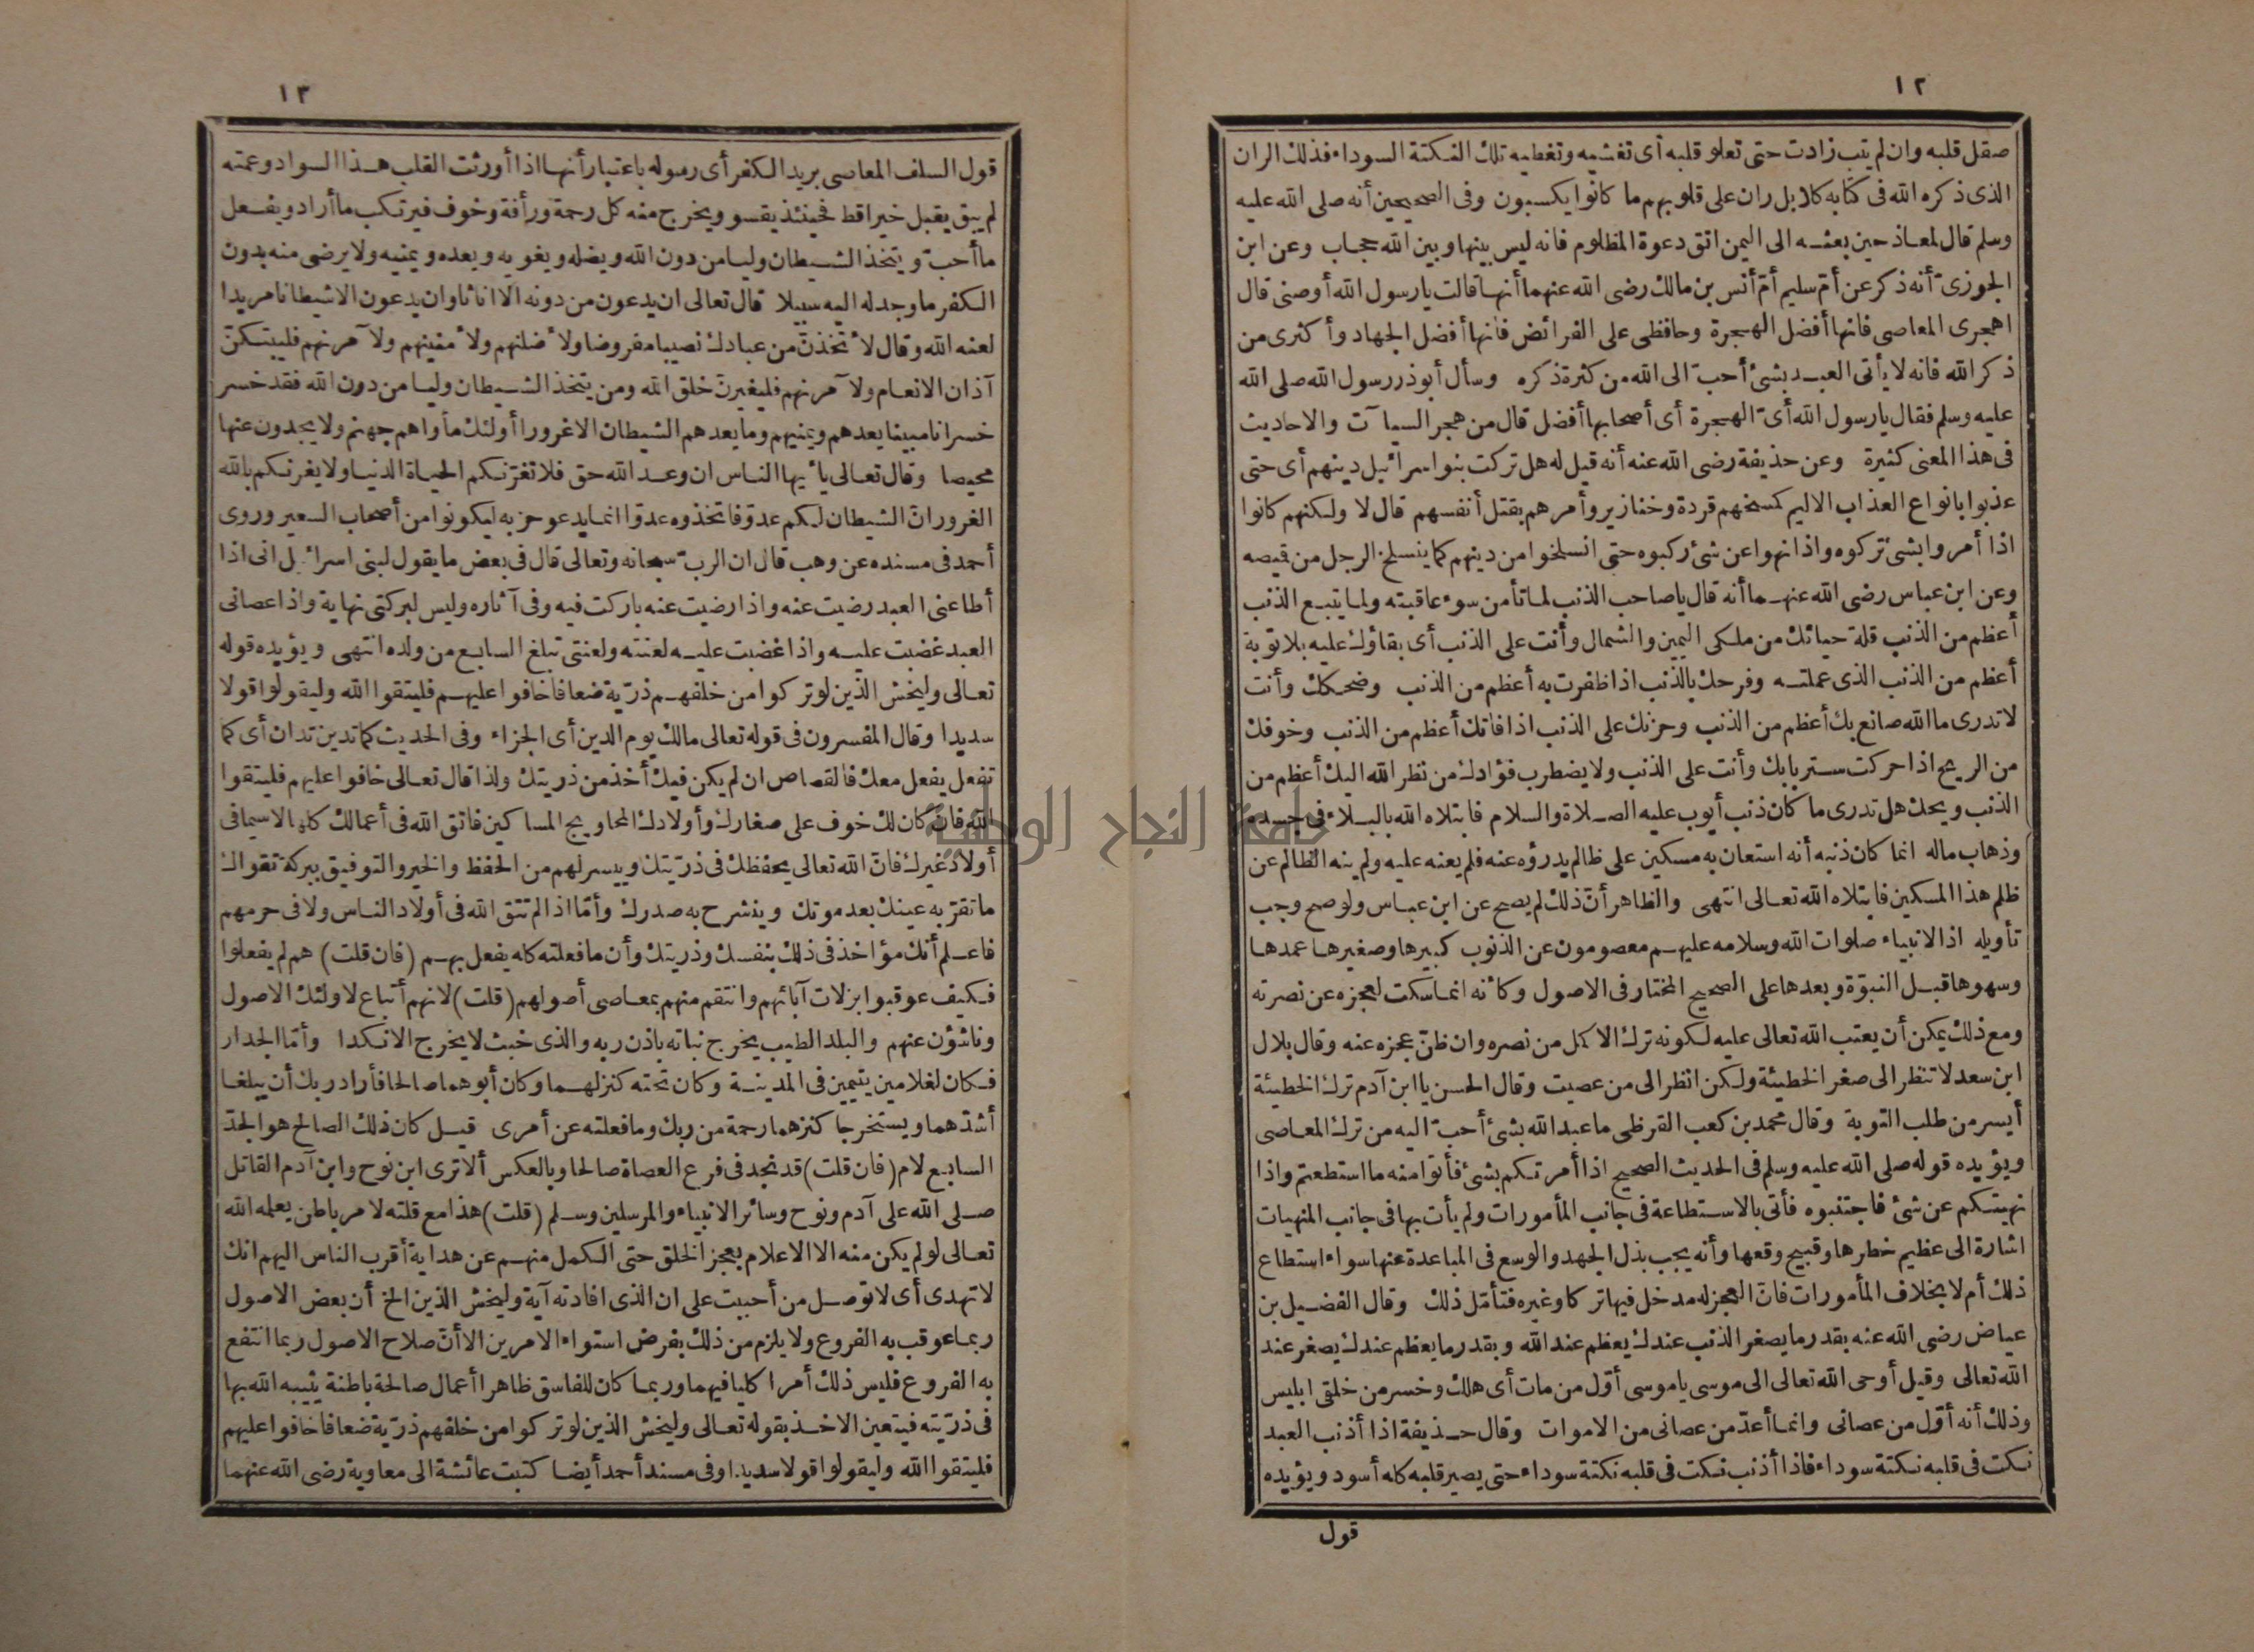 ١٢
صقل قلبه وان لم يتب زادت حتى تعلو قلبه أى تغشيه وتغطيه تلك النكتة السوداء فذلك الران
الذى ذكره الله فى كتابه كلا بل ران على قلوبهم ما كانوا يكسبون وفى الصحيحين أنه صلى الله عليه
وسلم قال لمعاذ حين بعثه الى اليمن اتق دعوة المظلوم فانه ليس بينها وبين الله حجاب وعن ابن
الجوزىّ أنه ذكر عن أمّ سليم أمّ أنس بن مالك رضى الله عنهما أنها قالت يارسول الله أوصنى قال
اهجرى المعاصى فانها أفضل الهجرة وحافظى على الفرائض فانها أفضل الجهاد وأكثرى من
ذكر الله فانه لا يأتى العبد بشئ أحبّ الى الله من كثرة ذكره وسأل أبوذر رسول الله صلى الله
عليه وسلم فقال يارسول الله أىّ الهجرة أى أصحابها أفضل قال من هجر السيآت والاحاديث
فى هذا المعنى كثيرة وعن حذيفة رضى الله عنه أنه قيل له هل تركت بنو اسرائيل دينهم أى حتى
عذبوا بانواع العذاب الاليم كمسخهم قردة وخنازير وأمرهم بقتل أنفسهم قال لا ولكنهم كانوا
اذا أمروا بشئ تركوه واذا نهوا عن شئ ركبوه حتى انسلخوا من دينهم كما ينسلخ الرجل من قميصه
وعن ابن عباس رضى الله عنهما أنه قال ياصاحب الذنب لما تأمن سوء عاقبته ولما يتبع الذنب
أعظم من الذنب قلة حيائك من ملكى اليمين والشمال وأنت على الذنب أى بقاؤك عليه بلا توبة
أعظم من الذنب الذى عملته وفرحك بالذنب اذا ظفرت به أعظم من الذنب وضحكك وأنت
لا تدرى ما الله صانع بك أعظم من الذنب وحزنك على الذنب اذا فاتك أعظم من الذنب وخوفك
من الريح اذا حركت ستر بابك وأنت على الذنب ولا يضطرب فؤادك من نظر الله اليك أعظم من
الذنب ويحك هل تدرى ما كان ذنب أيوب عليه الصلاة والسلام فابتلاه الله بالبلاء فى جسده
وذهاب ماله انما كان ذنبه أنه استعان به مسكين على ظالم يدرؤه عنه فلم يعنه عليه ولم ينه الظالم عن
ظلم هذا المسكين فابتلاه الله تعالى انتهى والظاهر أنّ ذلك لم يصح عن ابن عباس ولو صح وجب
تأويله اذ الانبياء صلوات الله وسلامه عليهم معصومون عن الذنوب كبيرها وصغيرها عمدها
وسهوها قبل النبوّة وبعدها على الصحيح المختار فى الاصول وكأنه انما سكت لعجزه عن نصرته
ومع ذلك يمكن أن يعتب الله تعالى عليه لكونه ترك الاكمل من نصره وان ظنّ عجزه عنه وقال بلال
ابن سعد لا تنظر الى صغر الخطيئة ولكن انظر الى من عصيت وقال الحسن يا ابن آدم ترك الخطيئة
أيسر من طلب التوبة وقال محمد بن كعب القرظى ما عبد الله بشئ أحبّ اليه من ترك المعاصى
ويؤيده قوله صلى الله عليه وسلم فى الحديث الصحيح اذا أمرتكم بشئ فأتوا منه ما استطعتم واذا
نهيتكم عن شئ فاجتنبوه فأتى بالاستطاعة فى جانب المأمورات ولم يأت بها فى جانب المنهيات
اشارة الى عظيم خطرها وقبيح وقعها وأنه يجب بذل الجهد والوسع فى المباعدة عنها سواء استطاع
ذلك أم لا بخلاف المأمورات فانّ العجز له مدخل فيها تركا وغيره فتأمّل ذلك وقال الفضيل بن
عياض رضى الله عنه بقدر ما يصغر الذنب عندك يعظم عند الله وبقدر ما يعظم عندك يصغر عند
الله تعالى وقيل أوحى الله تعالى الى موسى ياموسى أوّل من مات أى هلك وخسر من خلقى ابليس
وذلك أنه أوّل من عصانى وانما أعدّ من عصانى من الاموات وقال حذيفة اذا أذنب العبد
نكت فى قلبه نكتة سوداء فاذا أذنب نكت فى قلبه نكتة سوداء حتى يصير قلبه كله أسود ويؤيده
قول
١٣
قول السلف المعاصى بريد الكفر أى رسوله باعتبار أنها اذا أورثت القلب هذا السواد وعمته
لم يبق يقبل خيرا قط فحينئذ يقسو ويخرج منه كل رحمة ورأفة وخوف فيرتكب ما أراد ويفعل
ما أحبّ ويتخذ الشيطان وليا من دون الله ويضله ويغويه ويعده ويمنيه ولا يرضى منه بدون
الكفر ما وجد له اليه سبيلا قال تعالى ان يدعون من دونه الا اناثا وان يدعون الا شيطانا مريدا
لعنه الله وقال لأتخذنّ من عبادك نصيبا مفروضا ولأضلنهم ولأمنينهم ولآمرنهم فليبتكنّ
آذان الانعام ولآمرنهم فليغيرنّ خلق الله ومن يتخذ الشيطان وليا من دون الله فقد خسر
خسرانا مبينا يعدهم ويمنيهم وما يعدهم الشيطان الا غرورا أولئك مأواهم جهنم ولا يجدون عنها
محيصا وقال تعالى يأيها الناس ان وعد الله حق فلا تغرّنكم الحياة الدنيا ولا يغرنكم بالله
الغرور انّ الشيطان لكم عدوّ فاتخذوه عدوّا انما يدعو حزبه ليكونوا من أصحاب السعير وروى
أحمد فى مسنده عن وهب قال ان الربّ سبحانه وتعالى قال فى بعض ما يقول لبنى اسرائيل انى اذا
أطاعنى العبد رضيت عنه واذا رضيت عنه باركت فيه وفى آثاره وليس لبركتى نهاية واذا عصانى
العبد غضبت عليه واذا غضبت عليه لعنته ولعنتى تبلغ السابع من ولده انتهى ويؤيده قوله
تعالى وليخش الذين لو تركوا من خلفهم ذرّية ضعافا خافوا عليهم فليتقوا الله وليقولوا قولا
سديدا وقال المفسرون فى قوله تعالى مالك يوم الدين أى الجزاء وفى الحديث كما تدين تدان أى كما
تفعل يفعل معك فالقصاص ان لم يكن فيك أخذ من ذريتك ولذا قال تعالى خافوا عليهم فليتقوا
الله فان كان لك خوف على صغارك وأولادك المحاويج المساكين فاتق الله فى أعمالك كلها لاسيما فى
أولاد غيرك فانّ الله تعالى يحفظك فى ذرّيتك وييسر لهم من الحفظ والخير والتوفيق ببركة تقواك
ما تقرّ به عينك بعد موتك وينشرح به صدرك وأمّا اذا لم تتق الله فى أولاد الناس ولا فى حرمهم
فاعلم أنك مؤاخذ فى ذلك بنفسك وذريتك وأن ما فعلته كله يفعل بهم (فان قلت) هم لم يفعلوا
فكيف عوقبوا بزلات آبائهم وانتقم منهم بمعاصى أصولهم (قلت) لانهم أتباع لاولئك الاصول
وناشؤن عنهم والبلد الطيب يخرج نباته باذن ربه والذى خبث لا يخرج الا نكدا وأمّا الجدار
فكان لغلامين يتيمين فى المدينة وكان تحته كنز لهما وكان أبوهما صالحا فأراد ربك أن يبلغا
أشدّهما ويستخرجا كنزهما رحمة من ربك وما فعلته عن أمرى قيل كان ذلك الصالح هو الجدّ
السابع لام (فان قلت) قد نجد فى فرع العصاة صالحا وبالعكس ألا ترى ابن نوح وابن آدم القاتل
صلى الله على آدم ونوح وسائر الانبياء والمرسلين وسلم (قلت) هذا مع قلته لامر باطن يعلمه الله
تعالى لو لم يكن منه الا الاعلام بعجز الخلق حتى الكمل منهم عن هداية أقرب الناس اليهم انك
لا تهدى أى لا توصل من أحببت على ان الذى افادته آية وليخش الذين الخ أن بعض الاصول
ربما عوقب به الفروع ولا يلزم من ذلك بفرض استواء الامرين الا أنّ صلاح الاصول ربما انتفع
به الفروع فليس ذلك أمرا كليا فيهما وربما كان للفاسق ظاهرا أعمال صالحة باطنة يثيبه الله بها
فى ذرّيته فيتعين الاخذ بقوله تعالى وليخش الذين لو تركوا من خلفهم ذرّية ضعافا خافوا عليهم
فليتقوا الله وليقولوا قولا سديدا وفى مسند أحمد أيضا كتبت عائشة الى معاوية رضى الله عنهما
جامعة النجاح الوطنية